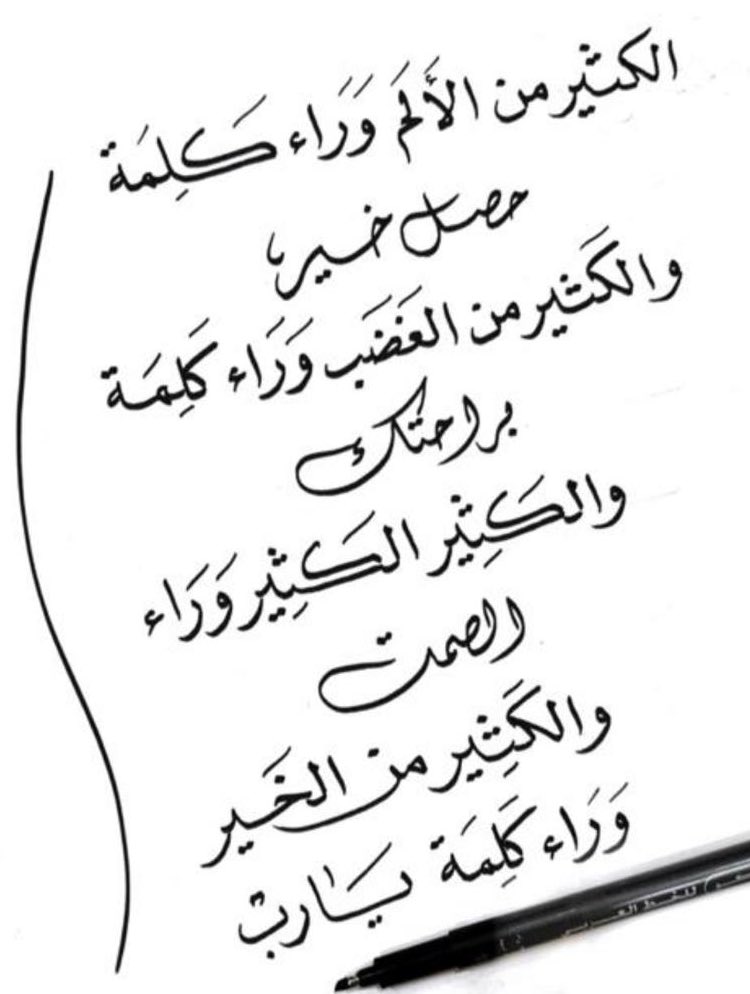 الكثير من الأَلَم وَرَاء كَلِمَة
حصل خير
والكَثير من الغَضَب وَرَاء كَلِمَة
براحتك
والكَثِير الكَثِير وَرَاء
الصمت
والكَثِير من الخَير
وَرَاء كَلِمَة يَارب
للخط العربي